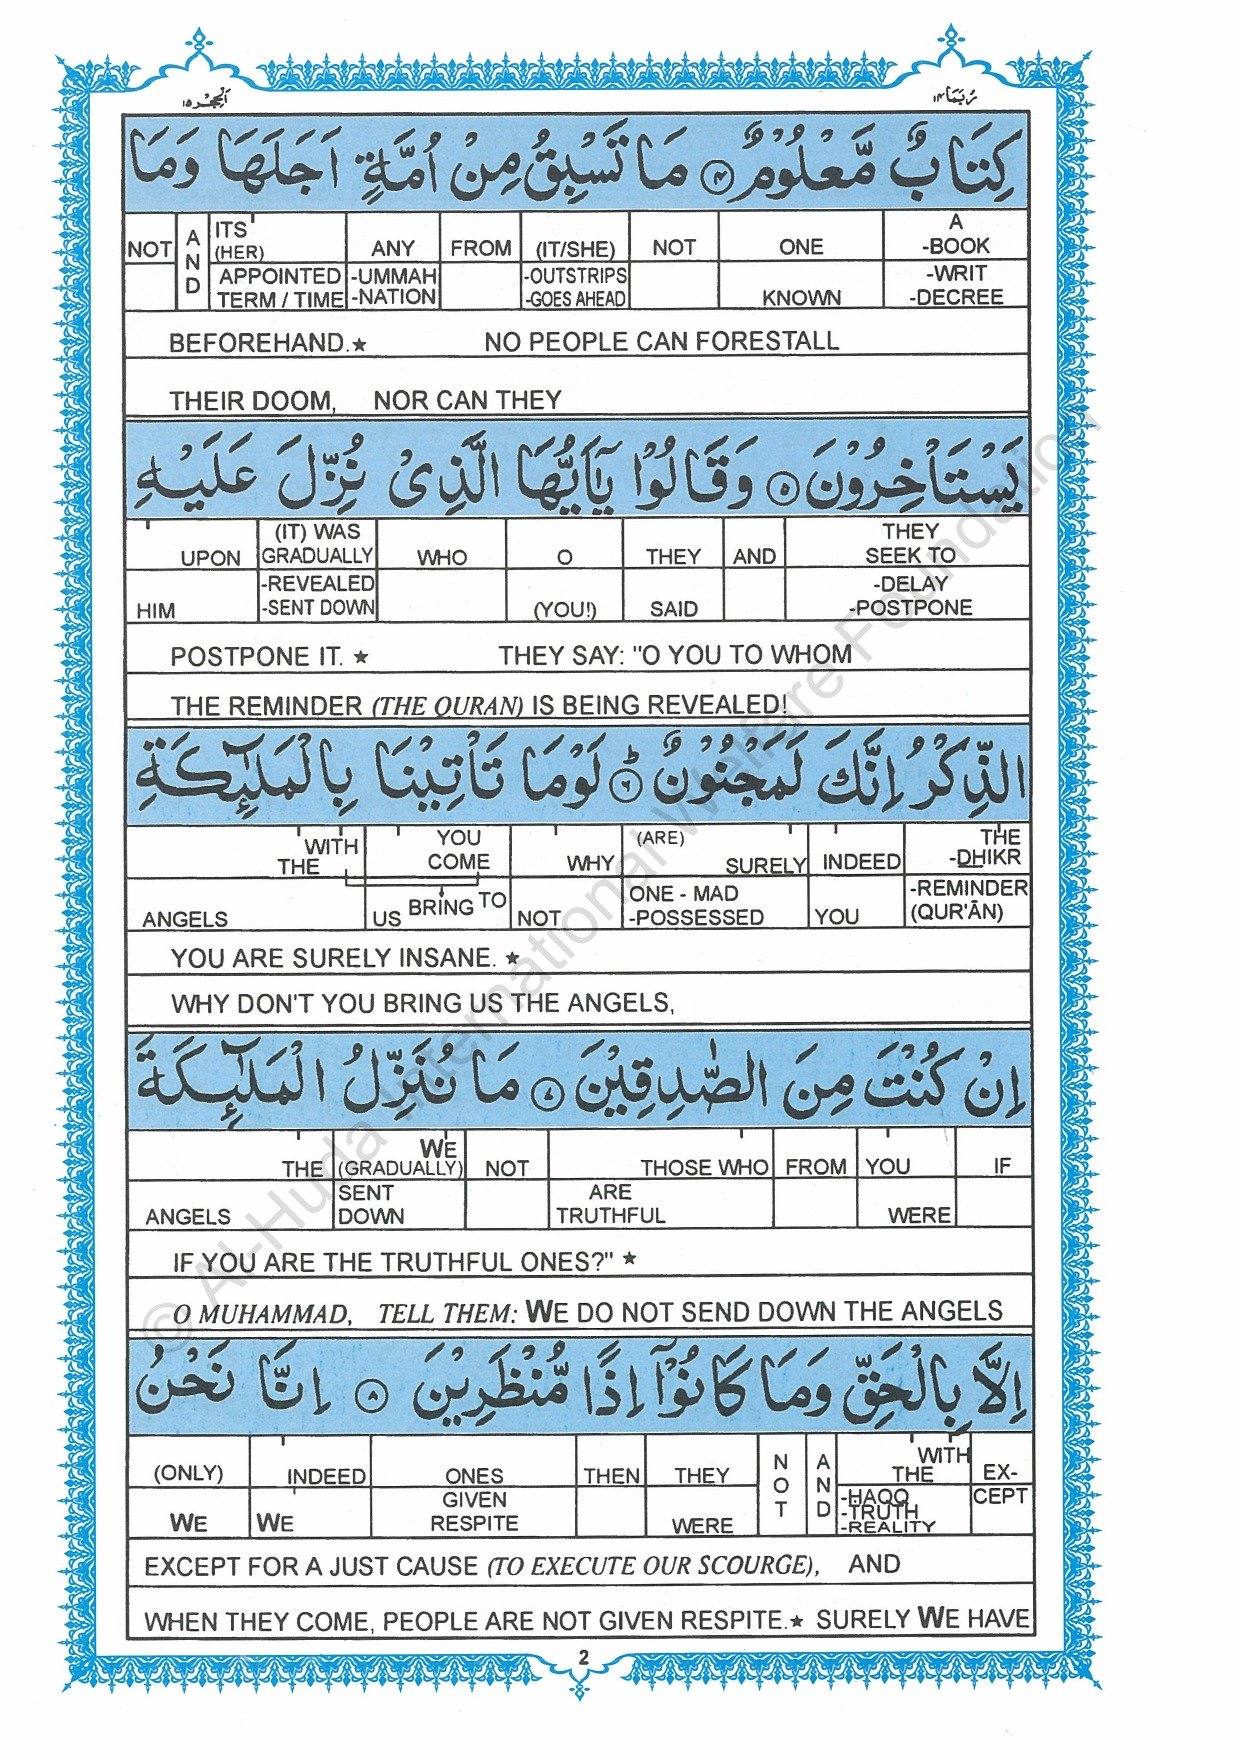 الحجر ١٥
ربما ١٤
كِتَابٌ مَّعْلُوْمٌ ۴ مَا تَسْبِقُ مِنْ اُمَّةٍ اَجَلَهَا وَمَا
A
ITS
NOT AND (HER) ANY FROM (IT/SHE) NOT ONE -BOOK
APPOINTED -UMMAH -OUTSTRIPS -WRIT
TERM / TIME -NATION -GOES AHEAD KNOWN -DECREE
BEFOREHAND.★ NO PEOPLE CAN FORESTALL
THEIR DOOM, NOR CAN THEY
يَسْتَاْخِرُوْنَ ۵ وَقَالُوْا يٰٓاَيُّهَا الَّذِىْ نُزِّلَ عَلَيْهِ
(IT) WAS THEY
UPON GRADUALLY WHO O THEY AND SEEK TO
-REVEALED -DELAY
HIM -SENT DOWN (YOU!) SAID -POSTPONE
POSTPONE IT. ★ THEY SAY: "O YOU TO WHOM
THE REMINDER (THE QURAN) IS BEING REVEALED!
الذِّكْرُ اِنَّكَ لَمَجْنُوْنٌ ۶ لَوْمَا تَاْتِيْنَا بِالْمَلٰٓئِكَةِ
WITH YOU (ARE) THE
THE COME WHY SURELY INDEED -DHIKR
BRING TO ONE - MAD -REMINDER
ANGELS US NOT -POSSESSED YOU (QUR'ĀN)
YOU ARE SURELY INSANE. ★
WHY DON'T YOU BRING US THE ANGELS,
اِنْ كُنْتَ مِنَ الصّٰدِقِيْنَ ۷ مَا نُنَزِّلُ الْمَلٰٓئِكَةَ
WE
THE (GRADUALLY) NOT THOSE WHO FROM YOU IF
SENT ARE
ANGELS DOWN TRUTHFUL WERE
IF YOU ARE THE TRUTHFUL ONES?" ★
O MUHAMMAD, TELL THEM: WE DO NOT SEND DOWN THE ANGELS
اِلَّا بِالْحَقِّ وَمَا كَانُوْٓا اِذًا مُّنْظَرِيْنَ ۸ اِنَّا نَحْنُ
WITH
(ONLY) INDEED ONES THEN THEY NOT AND THE EX-
GIVEN -HAQQ CEPT
WE WE RESPITE WERE -TRUTH
-REALITY
EXCEPT FOR A JUST CAUSE (TO EXECUTE OUR SCOURGE), AND
WHEN THEY COME, PEOPLE ARE NOT GIVEN RESPITE.★ SURELY WE HAVE
2
© Al-Huda International Welfare Foundation